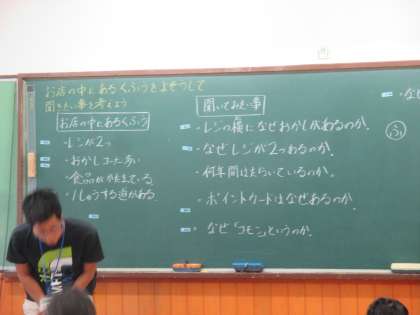 お店の中にあるくふうをよそうして
聞きたい事を考えよう
お店の中にあるくふう
・レジが2つ
・おかしコーナー多い
・1しゅうする道がある。
聞いてみたい事
・レジの横になぜおかしがあるのか。
・なぜレジが2つあるのか。
・何年間はたらいているのか。
・ポイントカードはなぜあるのか。
・なぜ「コモン」というのか。
・なぜ
ふ